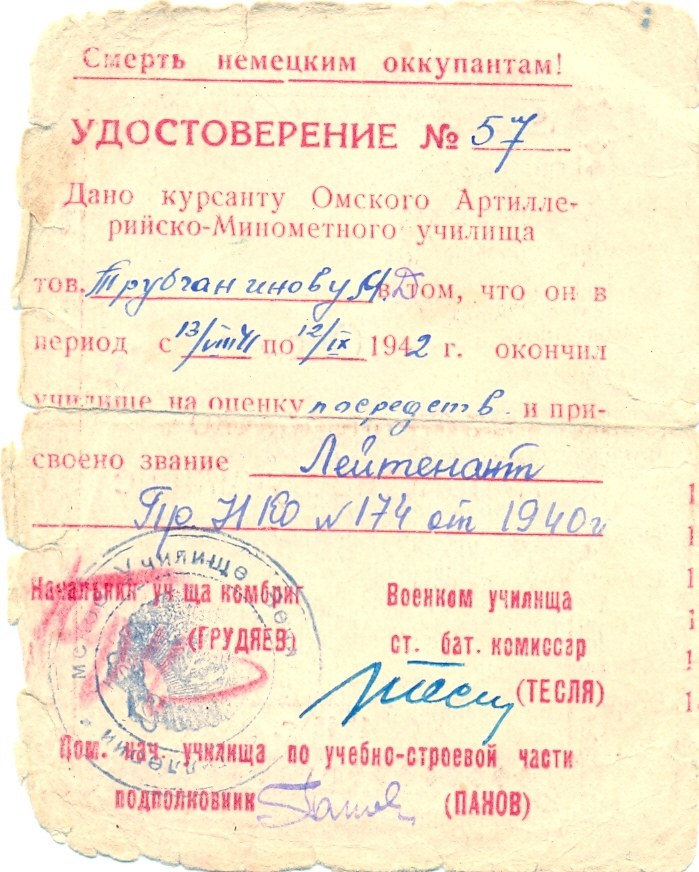 Смерть немецким оккупантам!
УДОСТОВЕРЕНИЕ № 57
Дано курсанту Омского Артилле-
рийско-Минометного училища
тов. Трубчанинову М.Д в том, что он в
период с 13/VIII 41 по 12/IX 1942 г. окончил
училище на оценку посредств. и при-
своено звание Лейтенант
Пр НКО № 174 от 1940 г
Начальник уч ща комбриг
(ГРУДЯЕВ)
Военком училища
ст. бат. комиссар
(ТЕСЛЯ)
Пом. нач. училища по учебно-строевой части
подполковник Панов (ПАНОВ)
Училище